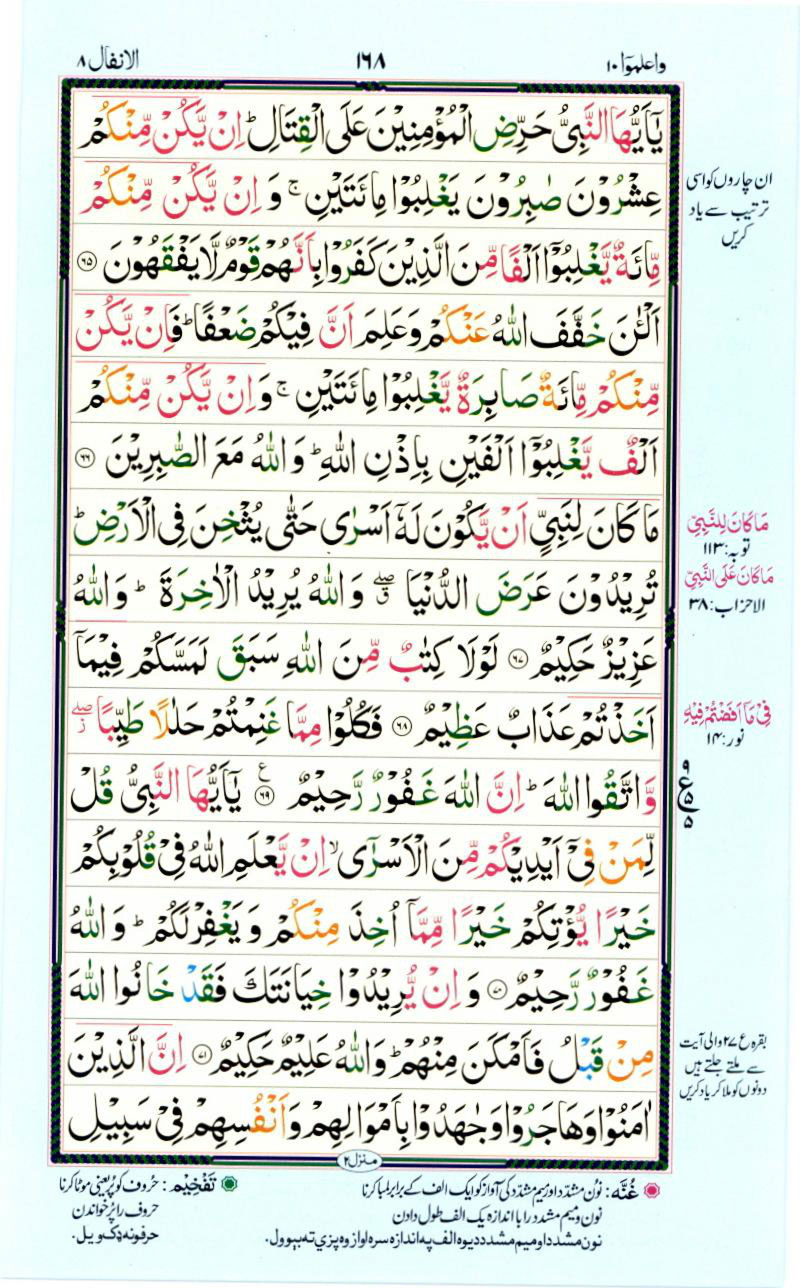 واعلموٓا ١٠
١٦٨
الانفال ٨
یٰۤاَیُّهَا النَّبِیُّ حَرِّضِ الْمُؤْمِنِیْنَ عَلَی الْقِتَالِ ؕ اِنْ یَّكُنْ مِّنْكُمْ
عِشْرُوْنَ صٰبِرُوْنَ یَغْلِبُوْا مِائَتَیْنِ ۚ وَ اِنْ یَّكُنْ مِّنْكُمْ
مِّائَةٌ یَّغْلِبُوْۤا اَلْفًا مِّنَ الَّذِیْنَ كَفَرُوْا بِاَنَّهُمْ قَوْمٌ لَّا یَفْقَهُوْنَ ۶۵
اَلْـٰٔنَ خَفَّفَ اللّٰهُ عَنْكُمْ وَعَلِمَ اَنَّ فِیْكُمْ ضَعْفًا ؕ فَاِنْ یَّكُنْ
مِّنْكُمْ مِّائَةٌ صَابِرَةٌ یَّغْلِبُوْا مِائَتَیْنِ ۚ وَاِنْ یَّكُنْ مِّنْكُمْ
اَلْفٌ یَّغْلِبُوْۤا اَلْفَیْنِ بِاِذْنِ اللّٰهِ ؕ وَاللّٰهُ مَعَ الصّٰبِرِیْنَ ۶۶
مَا كَانَ لِنَبِیٍّ اَنْ یَّكُوْنَ لَهٗۤ اَسْرٰی حَتّٰی یُثْخِنَ فِی الْاَرْضِ ؕ
تُرِیْدُوْنَ عَرَضَ الدُّنْیَا ۖۗ وَاللّٰهُ یُرِیْدُ الْاٰخِرَةَ ؕ وَاللّٰهُ
عَزِیْزٌ حَكِیْمٌ ۶۷ لَوْلَا كِتٰبٌ مِّنَ اللّٰهِ سَبَقَ لَمَسَّكُمْ فِیْمَاۤ
اَخَذْتُمْ عَذَابٌ عَظِیْمٌ ۶۸ فَكُلُوْا مِمَّا غَنِمْتُمْ حَلٰلًا طَیِّبًا ۖؗ
وَّاتَّقُوا اللّٰهَ ؕ اِنَّ اللّٰهَ غَفُوْرٌ رَّحِیْمٌ ۶۹ ع یٰۤاَیُّهَا النَّبِیُّ قُلْ
لِّمَنْ فِیْۤ اَیْدِیْكُمْ مِّنَ الْاَسْرٰۤی ۙ اِنْ یَّعْلَمِ اللّٰهُ فِیْ قُلُوْبِكُمْ
خَیْرًا یُّؤْتِكُمْ خَیْرًا مِّمَّاۤ اُخِذَ مِنْكُمْ وَیَغْفِرْ لَكُمْ ؕ وَاللّٰهُ
غَفُوْرٌ رَّحِیْمٌ ۷۰ وَ اِنْ یُّرِیْدُوْا خِیَانَتَكَ فَقَدْ خَانُوا اللّٰهَ
مِنْ قَبْلُ فَاَمْكَنَ مِنْهُمْ ؕ وَاللّٰهُ عَلِیْمٌ حَكِیْمٌ ۷۱ اِنَّ الَّذِیْنَ
اٰمَنُوْا وَهَاجَرُوْا وَجٰهَدُوْا بِاَمْوَالِهِمْ وَاَنْفُسِهِمْ فِیْ سَبِیْلِ
منزل ۲
ان چاروں کو اسی
ترتیب سے یاد
کریں
مَا كَانَ لِلنَّبِیِّ
توبہ: ۱۱۳
مَا كَانَ عَلَی النَّبِیِّ
الاحزاب: ۳۸
فِیْ مَاۤ اَفَضْتُمْ فِیْهِ
نور: ۱۴
۹
ع ۵
۵
بقرہ ع ۲۷ والی آیت
سے ملتے جلتے ہیں
دونوں کو ملا کر یاد کریں
غُنَّہ: نون مشدد اور میم مشدد کی آواز کو ایک الف کے برابر لمبا کرنا
نون و میم مشدد را با اندازه یک الف طول دادن
نون مشدد او میم مشدد دیوه الف په اندازه سره اواز وه پزې ته بېوول.
تَفْخِیْم: حروف کو پُر یعنی موٹا کرنا
حروف را پُر خواندن
حرفونه ډک ویل.